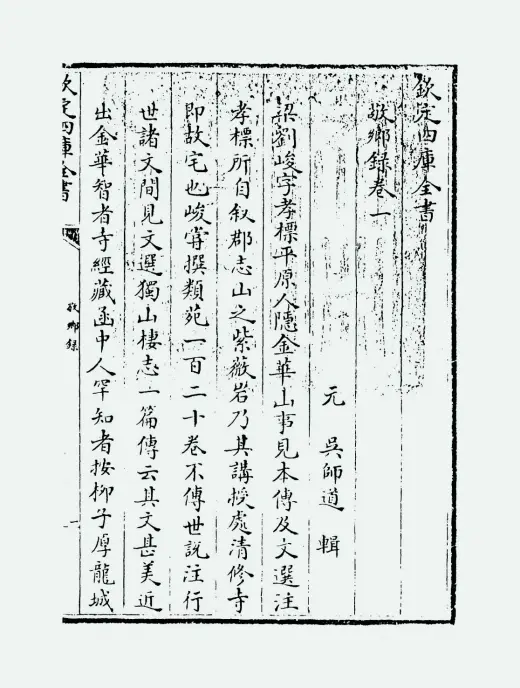 欽定四庫全書
敬鄉錄卷一
元 吳師道 輯
梁劉峻字孝標平原人隱金華山事見本傳及文選注
孝標所自叙郡志山之紫薇岩乃其講授處清修寺
即故宅也峻嘗撰類苑一百二十卷不傳世說注行
世諸文間見文選獨山棲志一篇傳云其文甚美近
出金華智者寺經藏函中人罕知者按柳子厚龍城
欽定四庫全書
敬鄉錄
一